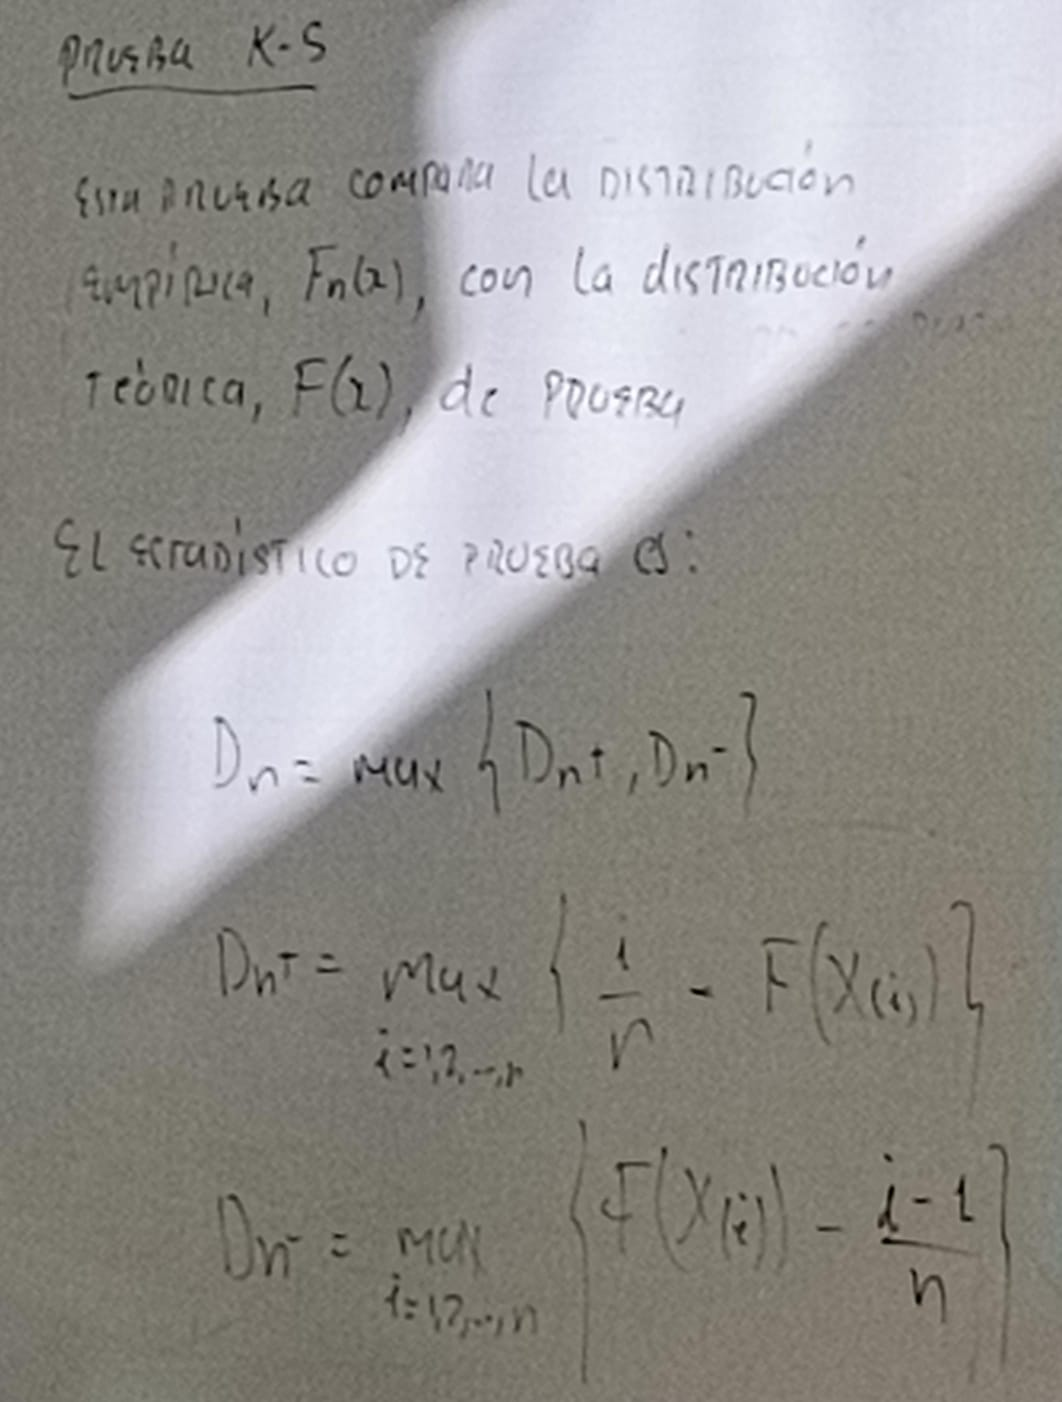 PRUEBA K-S
Esta PRUEBA compara la DISTRIBución
empírica, Fn(x), con la disTRIBución
Teórica, F(x), de PRUEBA
El estadístico DE PRUEBA es:
Dn = max { Dn+, Dn- }
Dn+ = max { i/n - F(X(i)) }
i=1,2,...,n
Dn- = max { F(X(i)) - i-1/n }
i=1,2,...,n